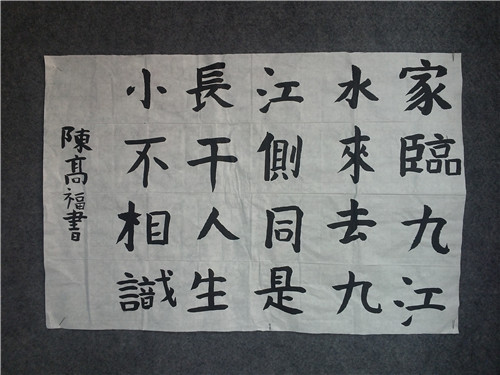 家臨九江
水來去九
江側同是
長干人生
小不相識
陳髙福書